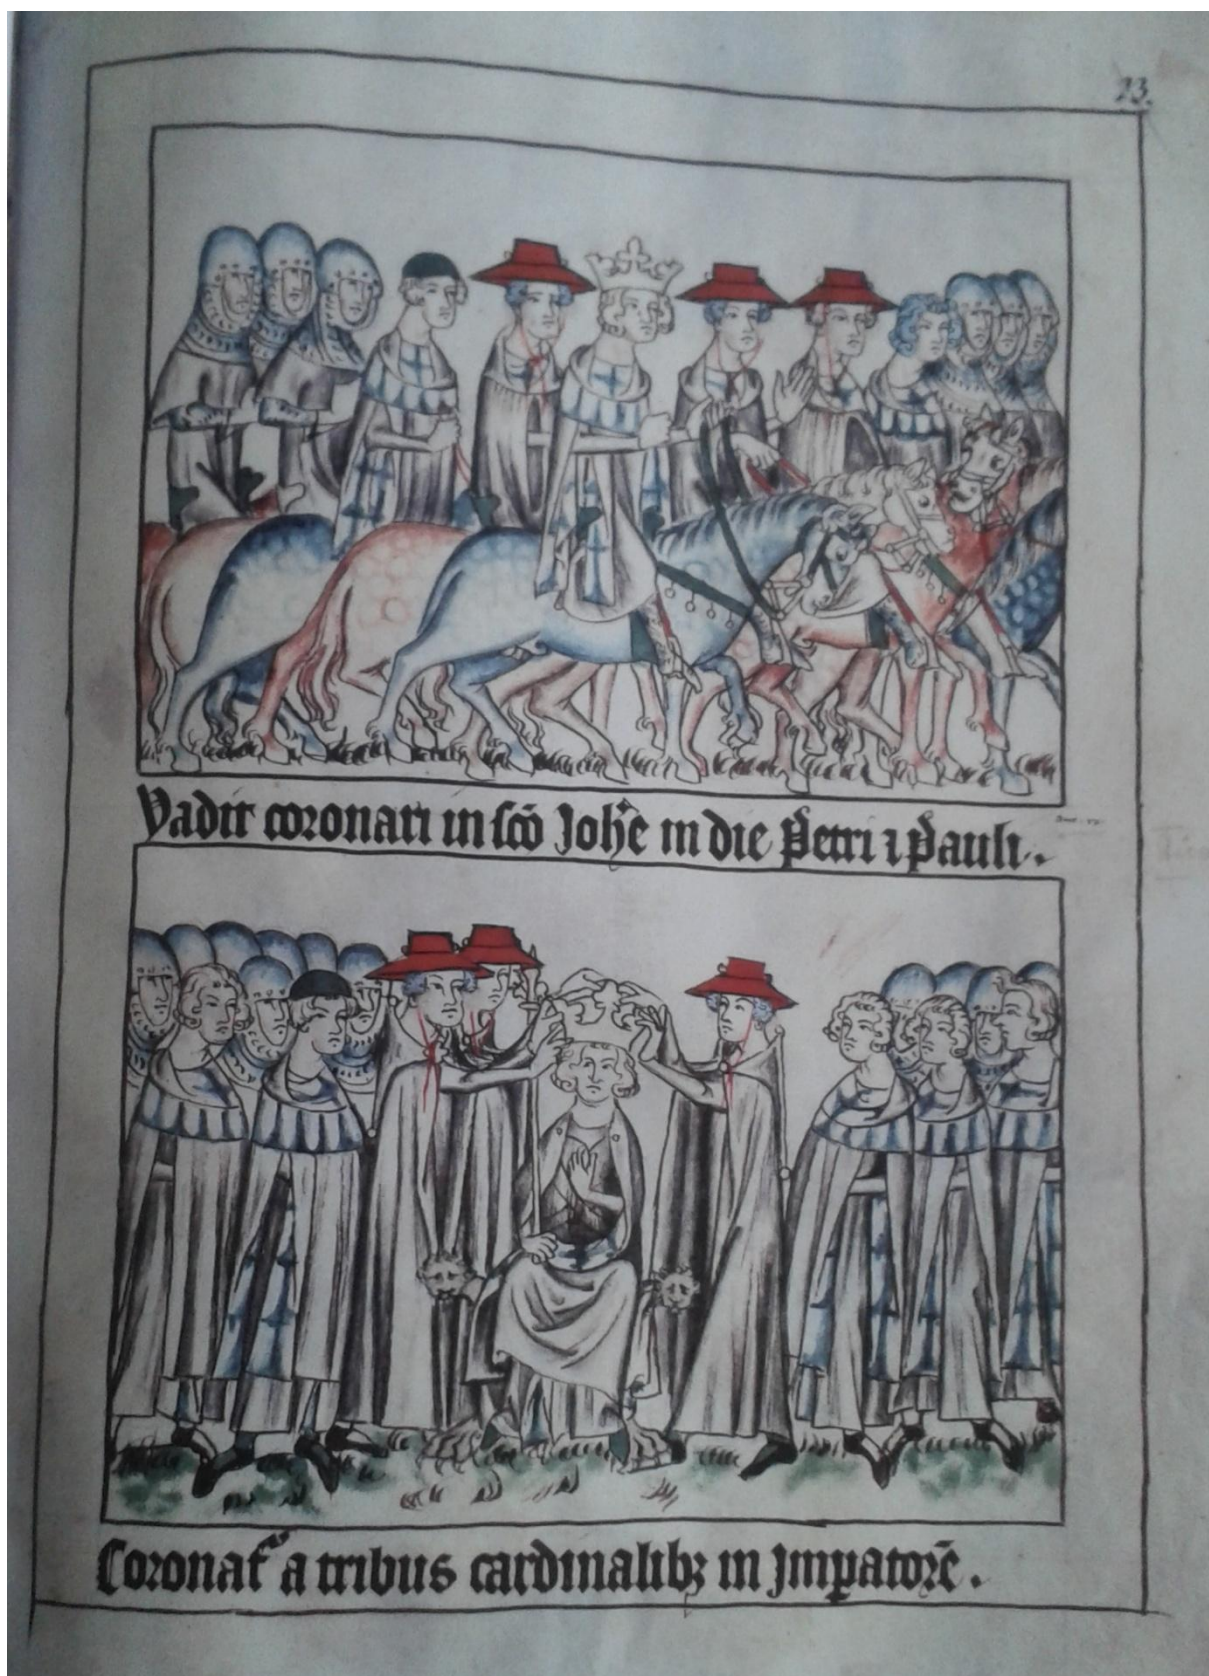 23.
Vadit coronari in scō Johē in die Petri ⁊ Pauli.
Coronatʳ a tribus cardinalibꝫ in Jmꝑatorē.